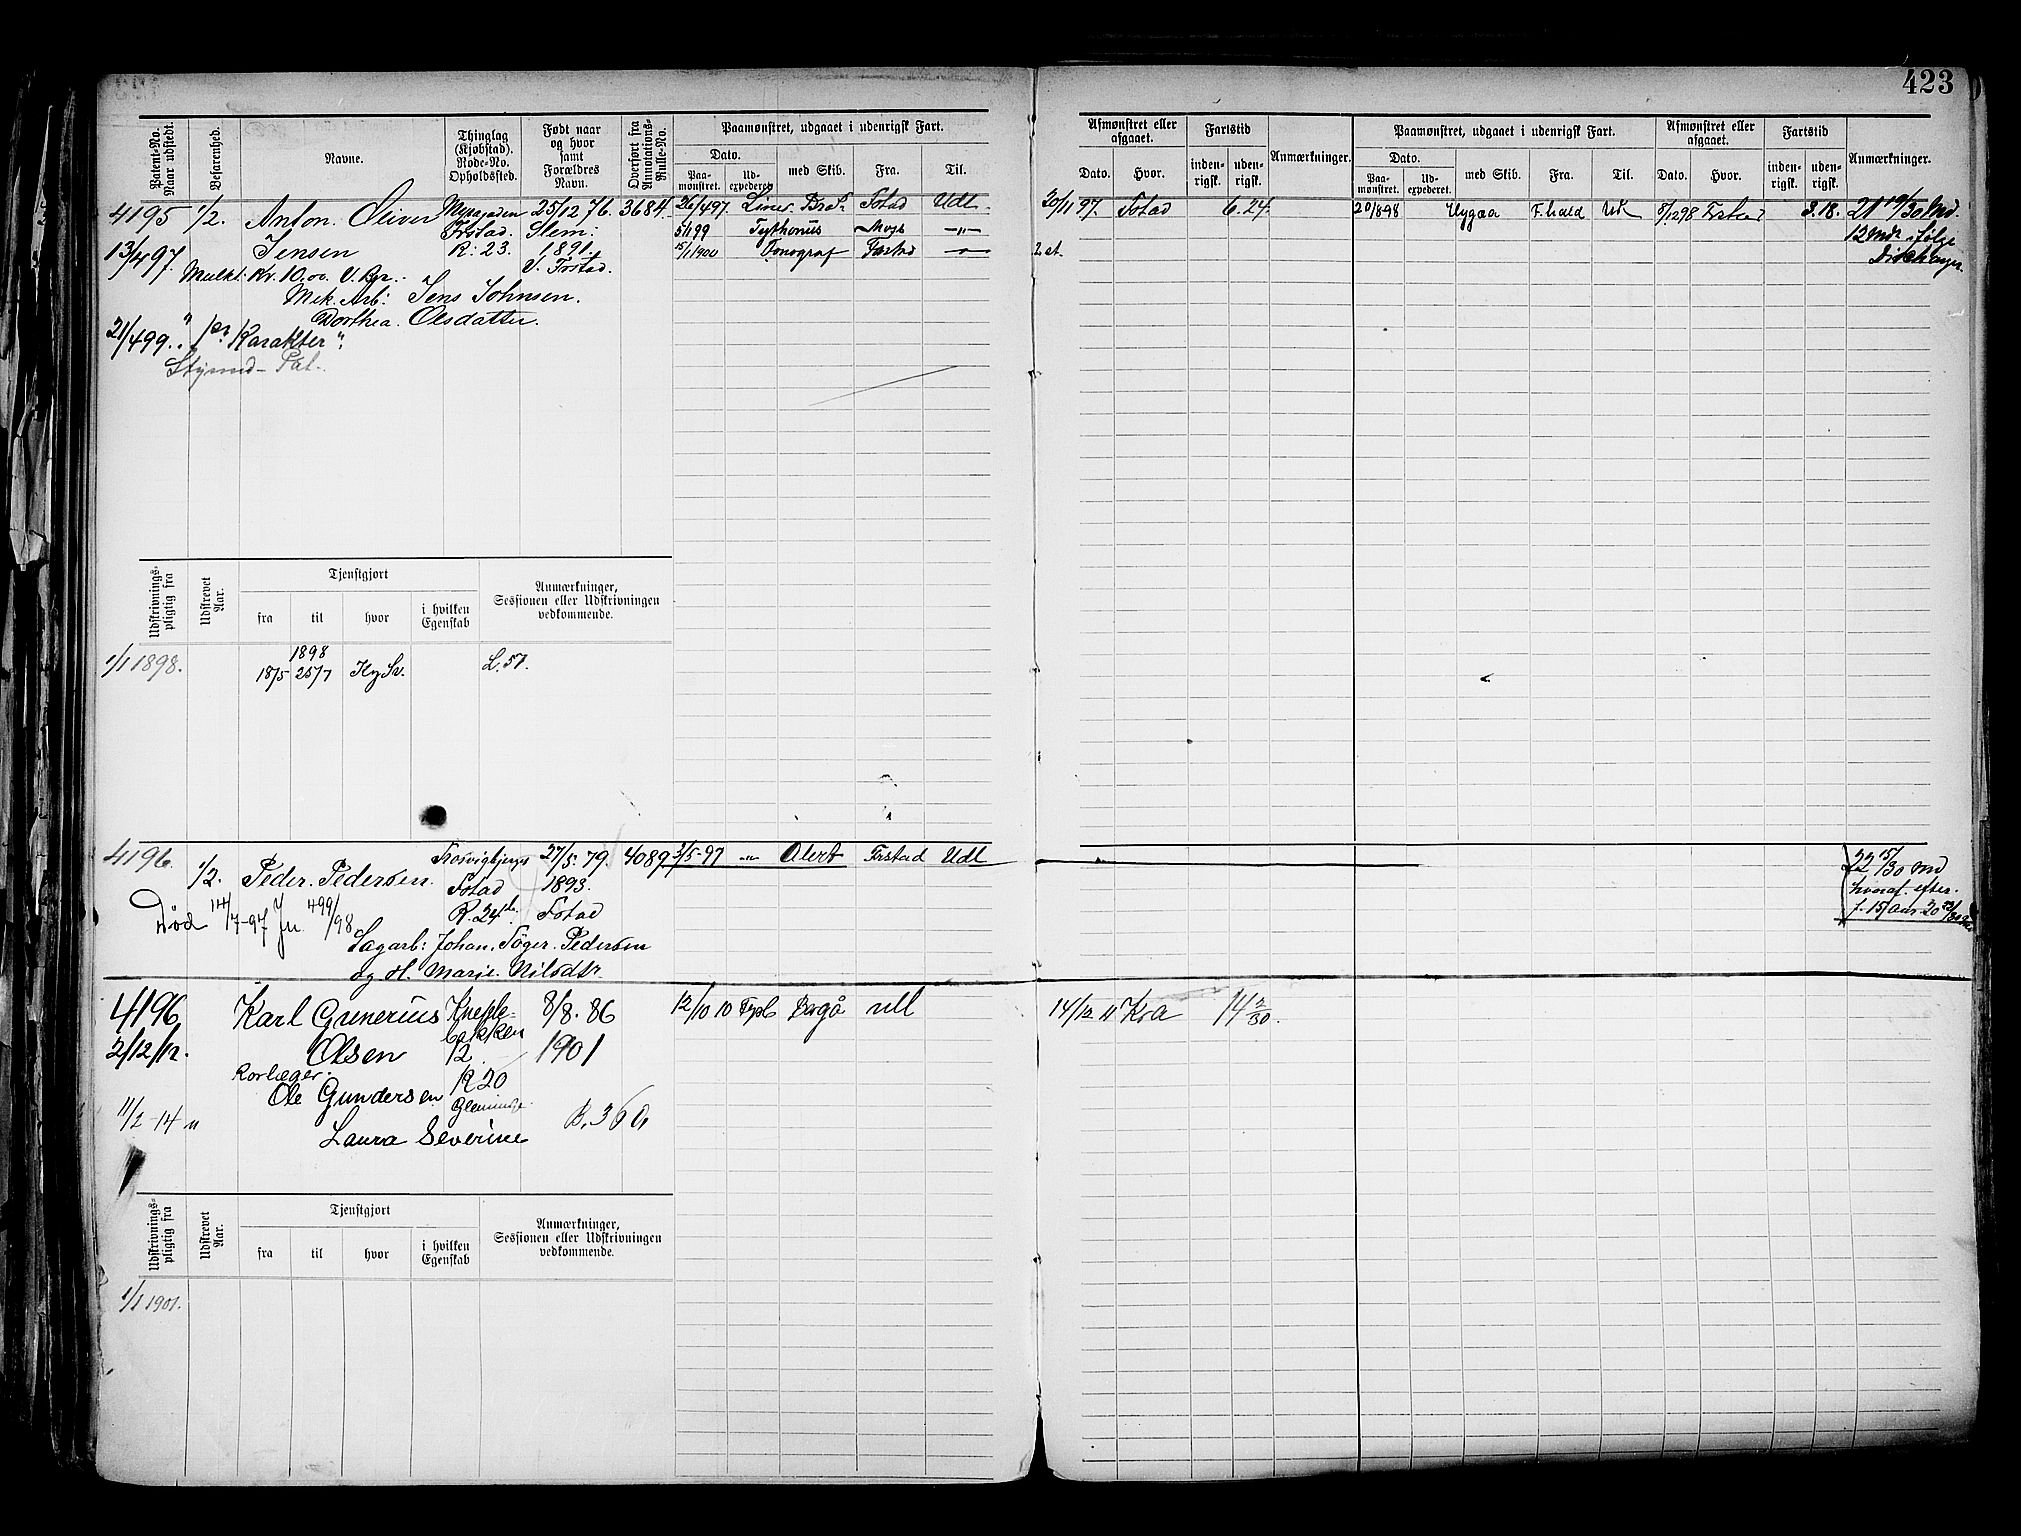 423
Patent-No. Naar udstedt.
Befarenhed.
Navne.
Thinglag (Kjøbstad). Rode-No. Opholdssted.
Født naar og hvor samt Forældres Navn.
Overført fra Annotations-Rulle-No.
Paamønstret, udgaaet i udenrigsk Fart.
Dato.
Paa-mønstret.
Ud-expederet.
med Skib.
Fra.
Til.
Afmønstret eller afgaaet.
Dato.
Hvor.
Fartstid
inden-rigsk.
uden-rigsk.
Anmærkninger.
Paamønstret, udgaaet i udenrigsk Fart.
Dato.
Paa-mønstret.
Ud-expederet.
med Skib.
Fra.
Til.
Afmønstret eller afgaaet.
Dato.
Hvor.
Fartstid
inden-rigsk.
uden-rigsk.
Anmærkninger.
4195 1/2. Anton Oliver 25/12 76. 3684. 26/4 97. Fstad Udl. 20/11 97. Fstad 6.24. 20/8 98 Hygæa F.hald Ud 8/12 98 3.18. 21 19/30 Md
Frstad. Slem: 5/1 99 Tythonus Moss —"—
13/4 97. Jensen R: 23. 1891. 15/1 1900 Fonograf Frstad —"—
12 Mdr ifølge
V. Fostad.
Mulkt: Kr. 10.00
Mek. Arb: Jens Johnsen.
Dorthea. Olsdatter.
21/4 99. " pr Karakter "
Styrmd- Pat.
Udskrivnings-pligtig fra
Udskrevet Aar.
Tjenstgjort
fra
til
hvor
i hvilken Egenskab
Anmærkninger, Sessionen eller Udskrivningen vedkommende.
1/1 1898. 18/5 1898 25/7 L. 57.
4196. 1/2. Peder. Pedersen. 27/5. 79. 4089 3/5-97 —"— Alert Frstad Udl 22 15/30 Md
Fstad 1893.
Død 14/7-97 Jn. 499/98 R. 24 Fstad
Sagarb: Johan. Pedersen
og H. Marie. Nilsdtr.
4196 Karl Gunerius Knipple- 8/8. 86 12/10 10 Borgå udl 14/12 11 Kra 14 2/30.
bakken
2/12/12. Olsen 12 1901
R 20
Ole Gundersen Glemminge
11/2-14 " B. 360.
Laura Severine
Udskrivnings-pligtig fra
Udskrevet Aar.
Tjenstgjort
fra
til
hvor
i hvilken Egenskab
Anmærkninger, Sessionen eller Udskrivningen vedkommende.
1/1 1901.